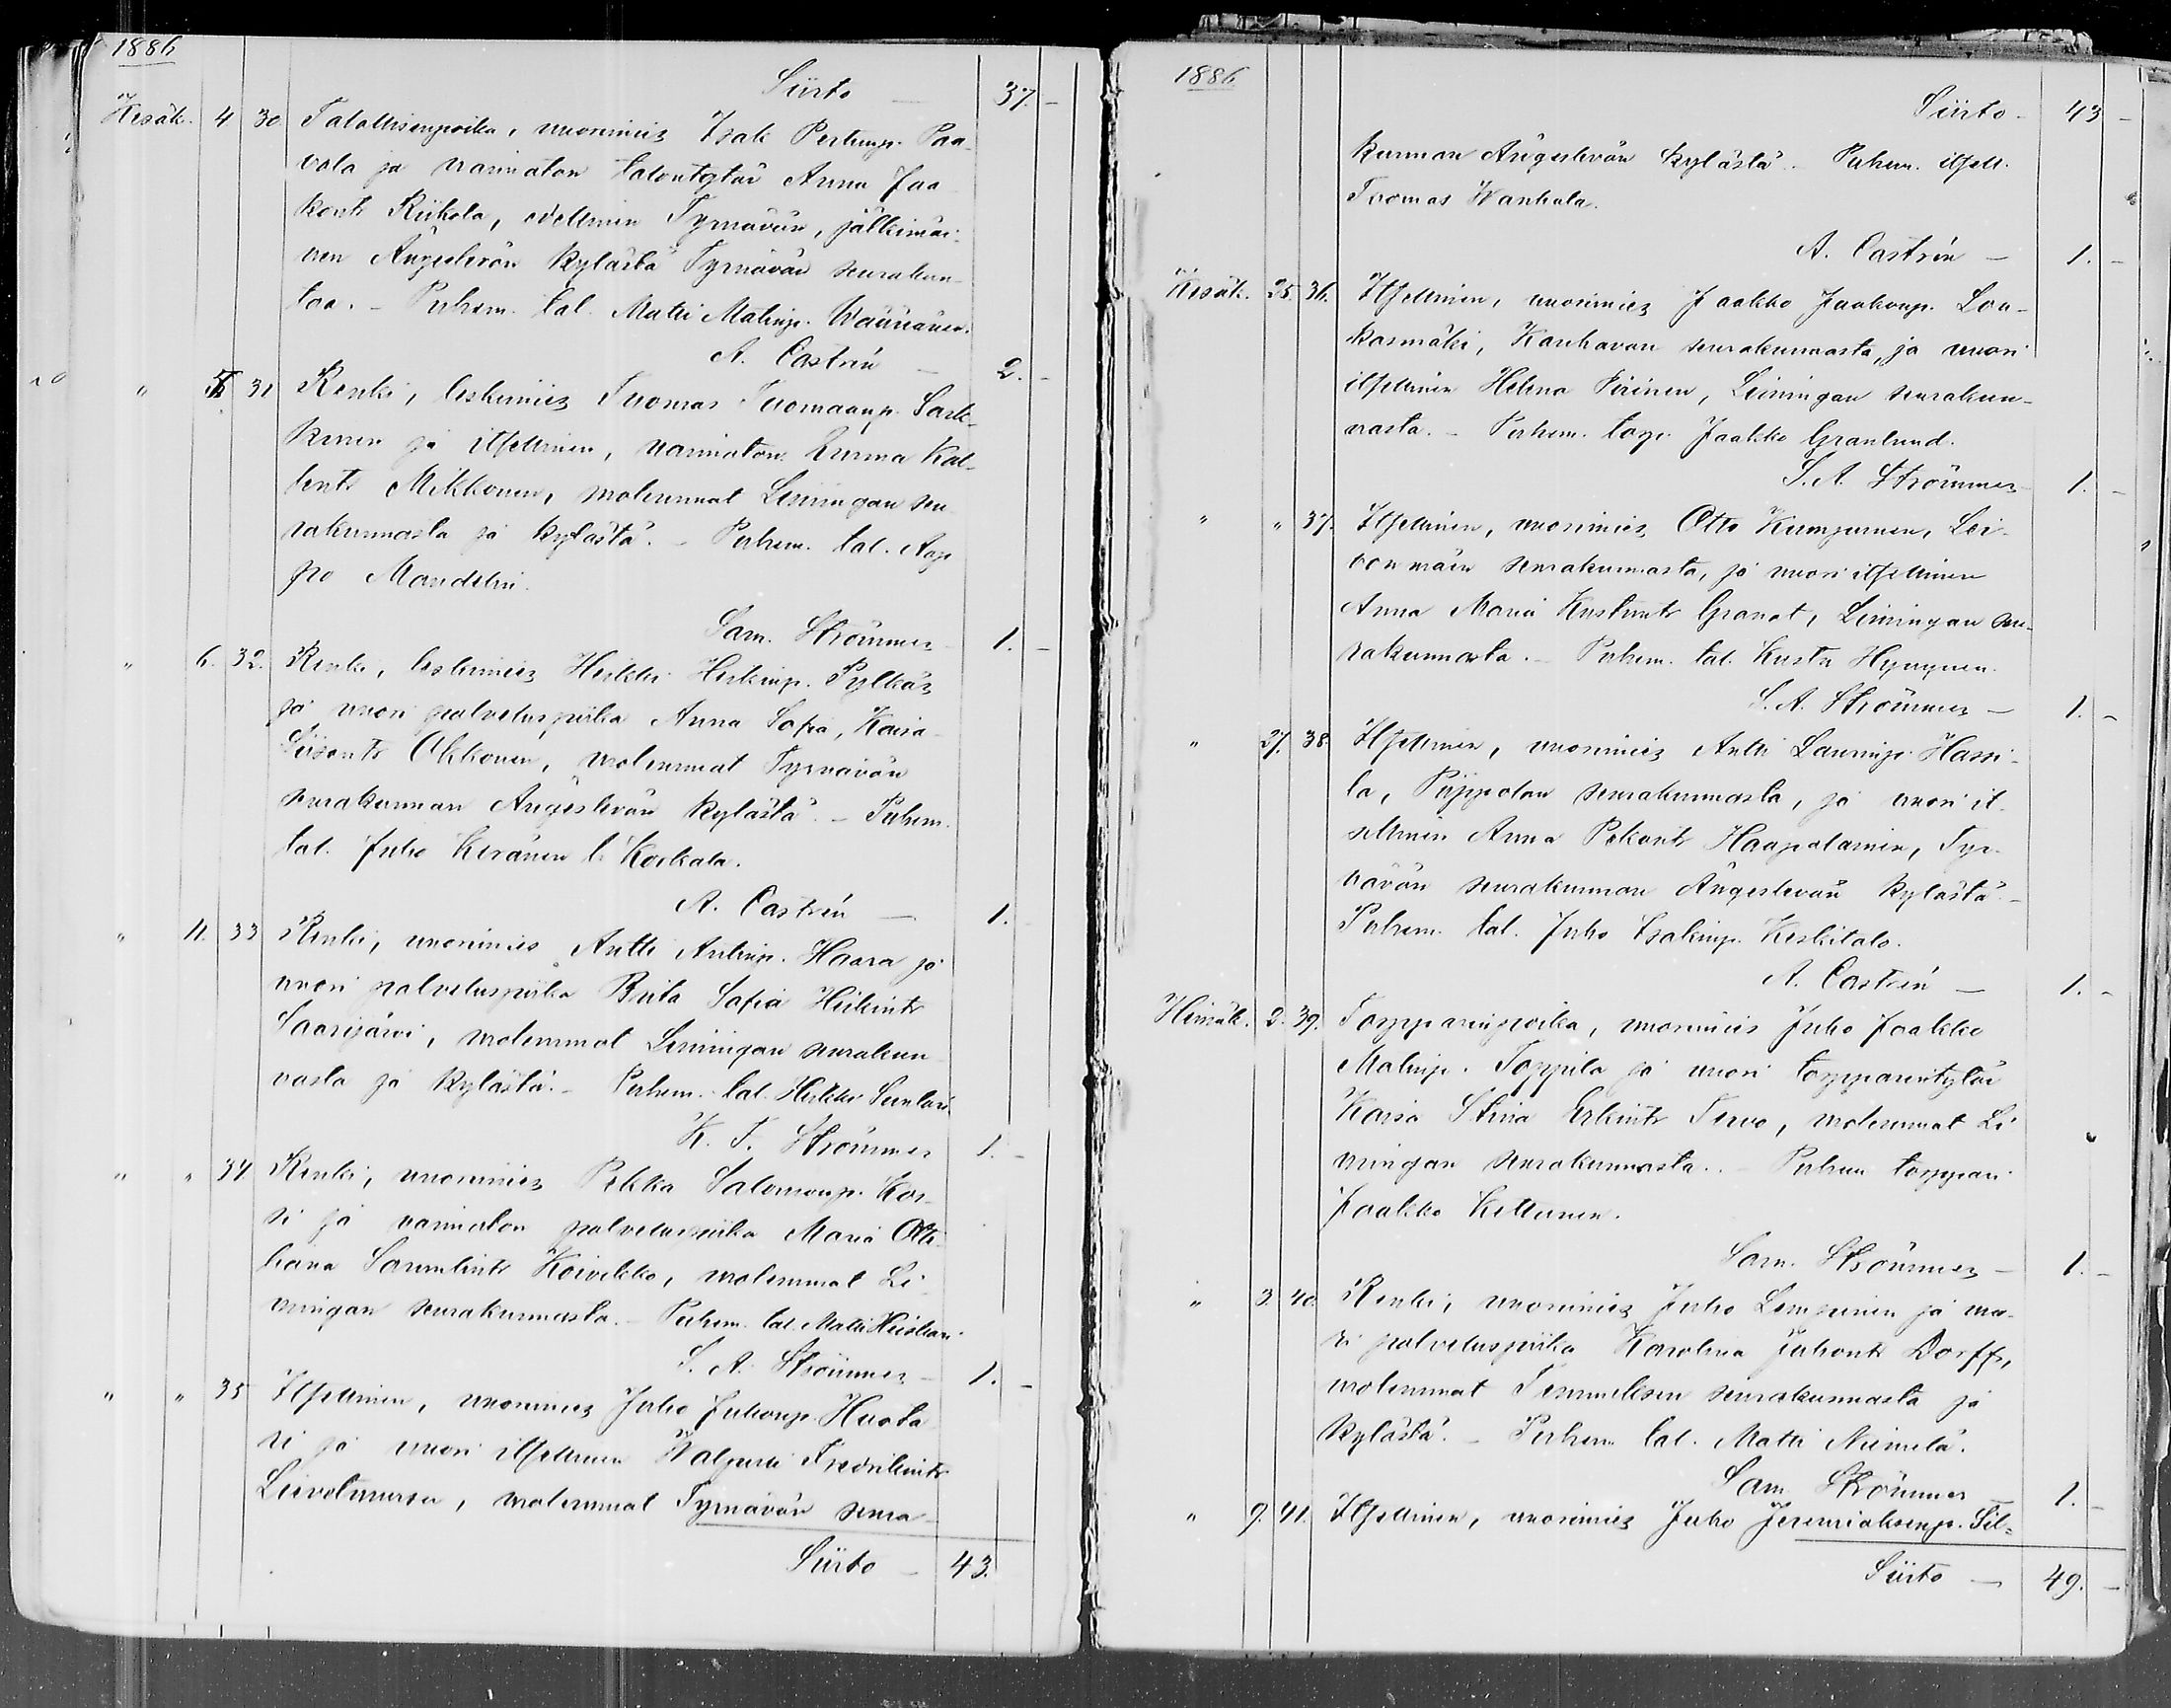 1886
Siirto — 37. —
Kesäk. 4 30. Talollisenpoika, nuorimies Isak Perttunp. Paa-
vola ja vaimaton talontytär Anna Jaa-
kontr Riikola, edellinen Tyrnävän, jälkimäi-
nen Ängeslevän kylästä Tyrnävän seurakun-
taa. — Puhem. tal. Matti Matinp. Väänänen.
A. Castrén — 2. —
" 5. 31 Renki, leskimies Tuomas Tuomaanp. Sark-
kinen ja itsellinen, naimaton Emma Kal-
lentr Mikkonen, molemmat Limingan seu-
rakunnasta ja kylästä. — Puhem. tal. Aap-
po Mandelin.
Sam. Strömmer 1. —
" 6. 32. Renki, leskimies Heikki Heikinp. Pylkäs
ja nuori palveluspiika Anna Sofia, Kaisa
Liisantr Okkonen, molemmat Tyrnävän
seurakunnan Ängeslevän kylästä. — Puhem.
tal. Juho Keränen l. Korkala.
A. Castrén — 1.
" 11. 33 Renki, nuorimies Antti Antinp. Haara ja
nuori palveluspiika Brita Sofia Heikintr
Saarijärvi, molemmat Limingan seurakun-
nasta ja kylästä. — Puhem. tal. Heikki Suntari
K. T. Strömmer 1. —
" " 34. Renki, nuorimies Pekka Salomonp. Kor-
si ja naimaton palveluspiika Maria Otti-
liana Samulintr Koivikko, molemmat Li-
mingan seurakunnasta. — Puhem. tal. Matti Heiskari
S. A. Strömmer — 1. —
" " 35 Itsellinen, nuorimies Juho Juhonp. Huota-
ri ja nuori itsellinen Walpuri Fredrikintr
Lievetmursu, molemmat Tyrnävän seura-
Siirto — 43.
1886
Siirto — 43 —
kunnan Ängeslevän kylästä. Puhem. itsell.
Tuomas Wanhala.
A. Castrén — 1. —
Kesäk. 25. 36. Itsellinen, nuorimies Jaakko Jaakonp. Loa-
kasmäki, Kauhavan seurakunnasta, ja nuori
itsellinen Helena Piirinen, Limingan seurakun-
nasta. — Puhem. torp. Jaakko Granlund.
S. A. Strömmer 1. —
" " 37. Itsellinen, nuorimies Otto Kumpunen, Lei-
vonmäen seurakunnasta, ja nuori itsellinen
Anna Maria Kustuntr Granat, Limingan seu-
rakunnasta. — Puhem. tal. Kusta Hynynen.
S. A. Strömmer — 1. —
" 27. 38. Itsellinen, nuorimies Antti Laurinp. Hassi-
la, Piippolan seurakunnasta, ja nuori it-
sellinen Anna Pekantr Haapalainen, Tyr-
nävän seurakunnan Ängeslevän kylästä. —
Puhem. tal. Juho Isakinp. Keskitalo.
A. Castrén — 1. —
Heinäk. 2. 39. Torpparinpoika, nuorimies Juho Jaakko
Matinp. Toppila ja nuori torpparintytär
Kaisa Stiina Erkintr Tervo, molemmat Li-
mingan seurakunnasta. — Puhem torppari
Jaakko Kettunen.
Sam. Strömmer — 1. —
" 3. 40. Renki, nuorimies Juho Lempinen ja nuo-
ri palveluspiika Karolina Juhontr Dorff,
molemmat Temmeksen seurakunnasta ja
kylästä. — Puhem tal. Matti Niemelä.
Sam Strömmer 1. —
" 9. 41. Itsellinen, nuorimies Juho Jeremiaksenp. Sil-
Siirto — 49. —